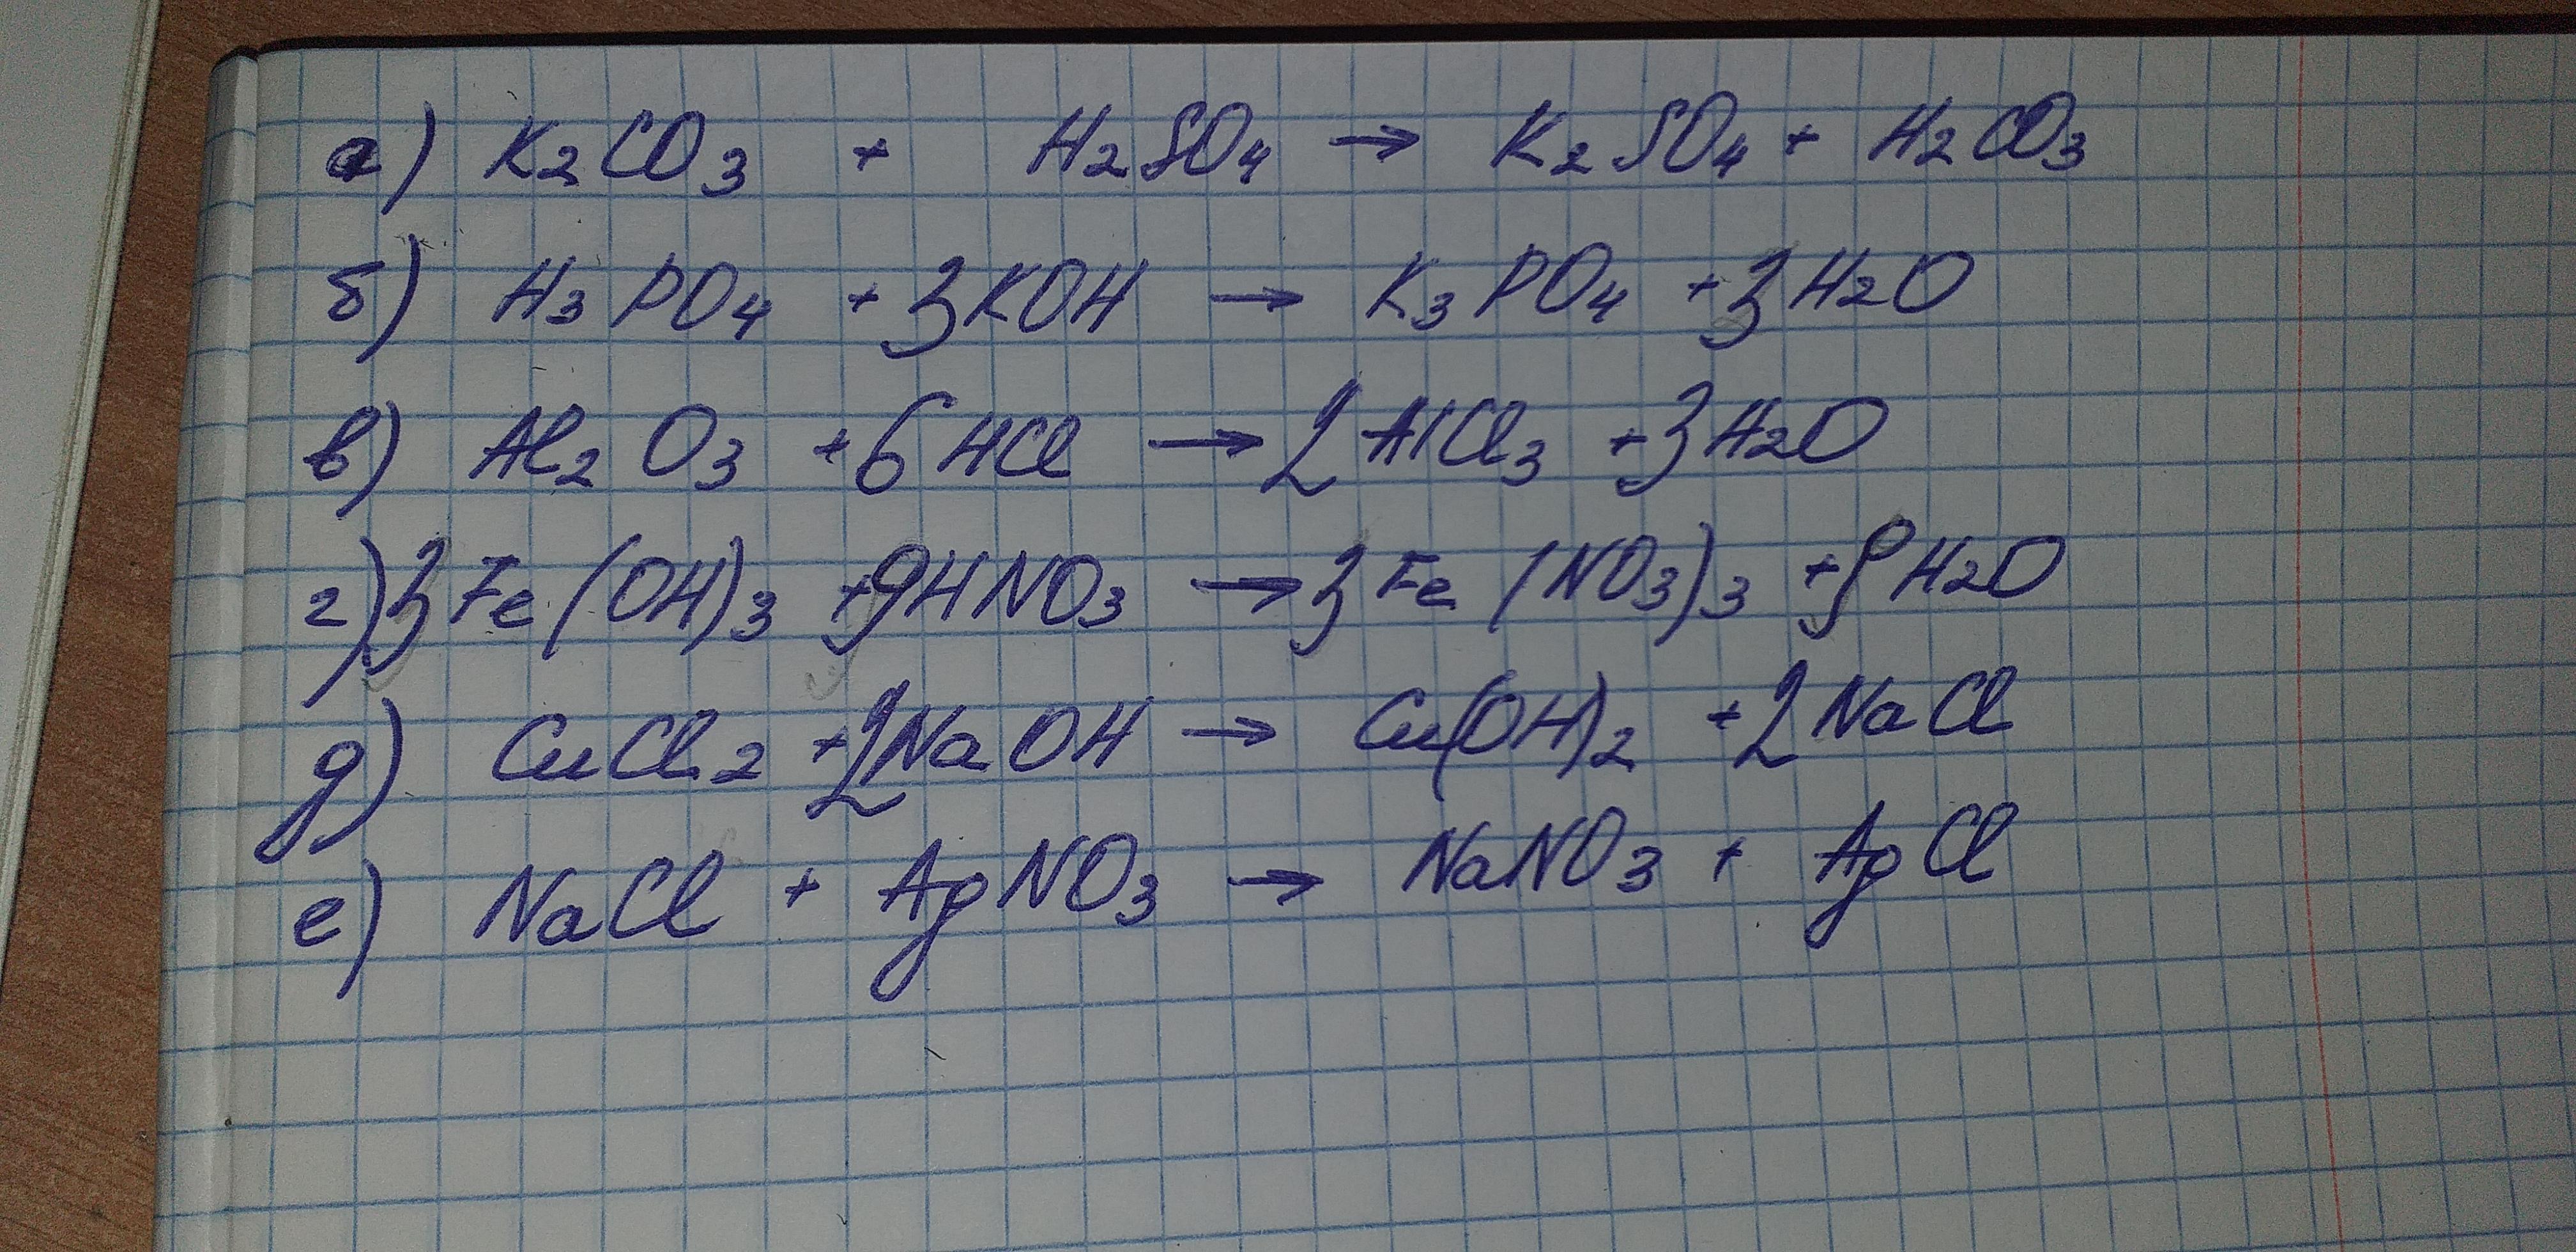 а) K₂CO₃ + H₂SO₄ → K₂SO₄ + H₂CO₃
б) H₃PO₄ + 3KOH → K₃PO₄ + 3H₂O
в) Al₂O₃ + 6HCl → 2AlCl₃ + 3H₂O
г) 3Fe(OH)₃ + 9HNO₃ → 3Fe(NO₃)₃ + 9H₂O
д) CuCl₂ + 2NaOH → Cu(OH)₂ + 2NaCl
е) NaCl + AgNO₃ → NaNO₃ + AgCl